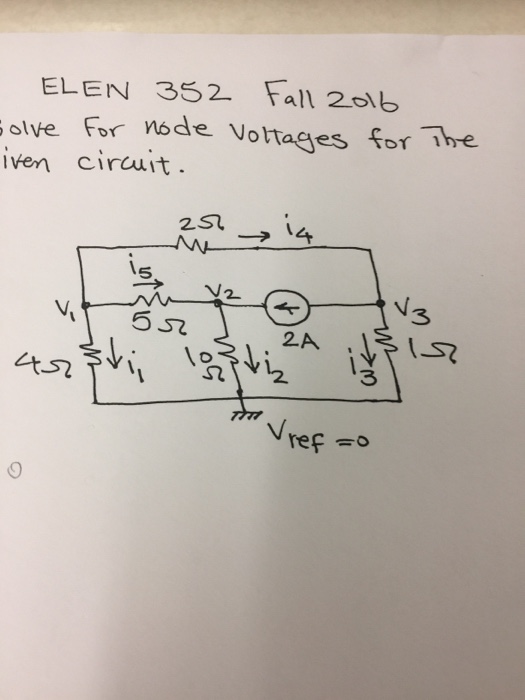 ELEN 352 Fall 2016
Solve For node Voltages for The
iven circuit.
2Ω → i4
i5
V1
5Ω
V2
2A
V3
4Ω
i1
10Ω
i2
i3
1Ω
Vref =0